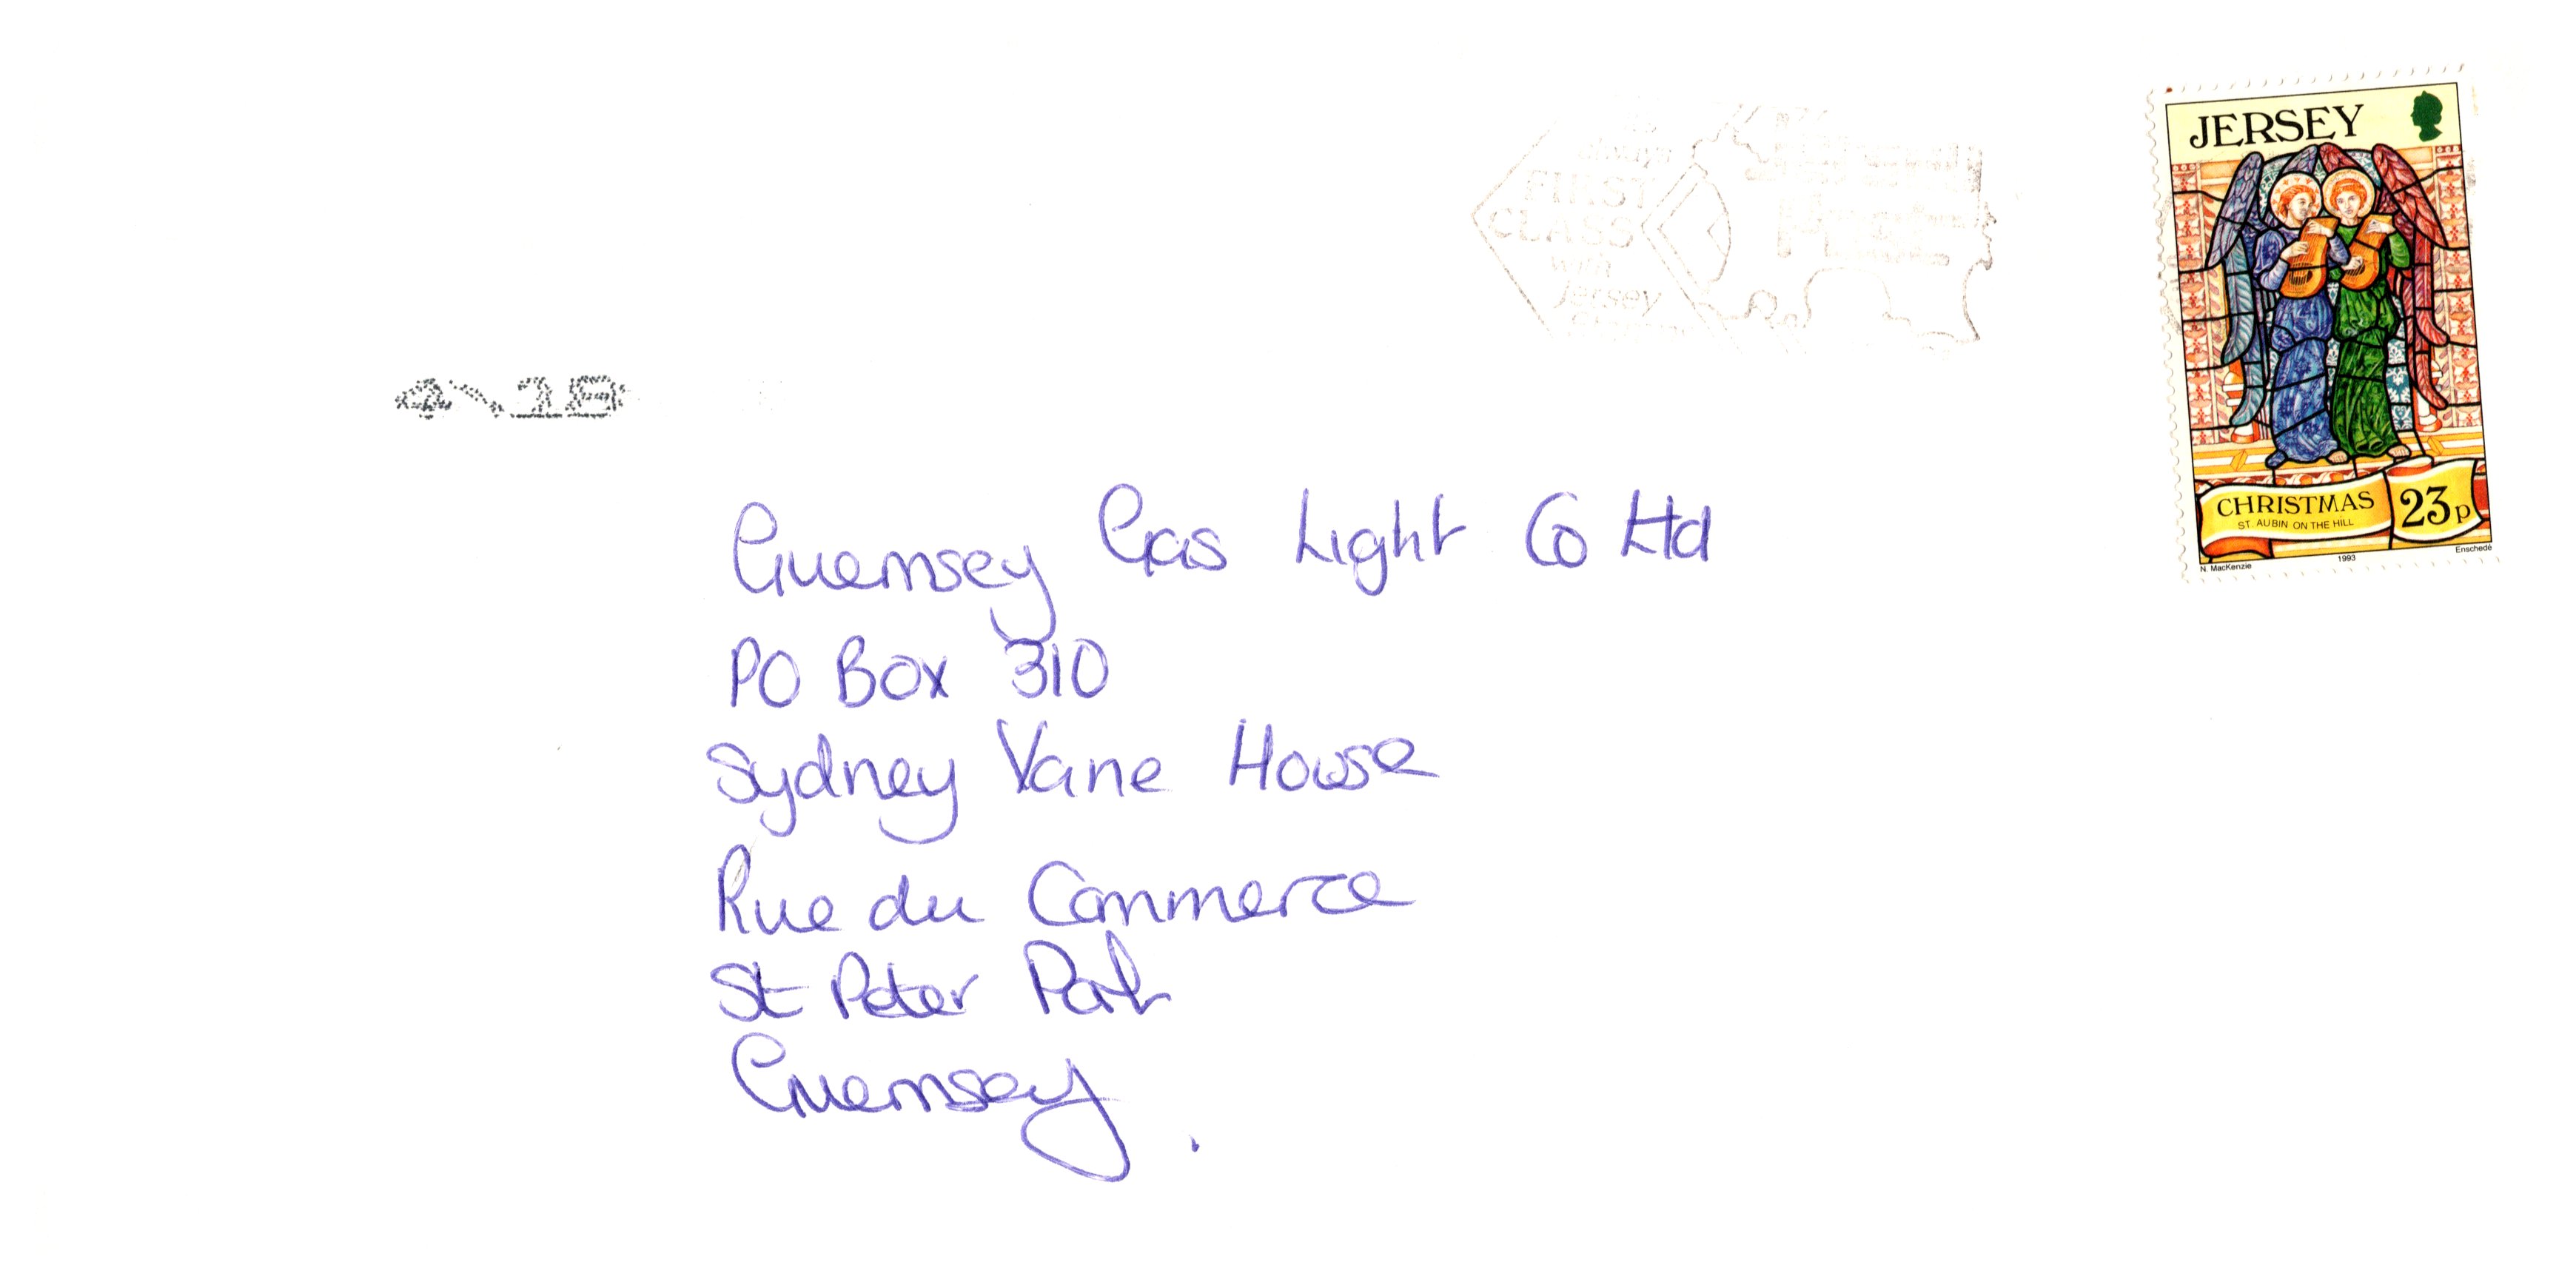 always
FIRST
CLASS
with
Jersey
JERSEY
CHRISTMAS
ST. AUBIN ON THE HILL
23p
N. MacKenzie
1993
Enschedé
Guernsey Gas Light Co Ltd
PO Box 310
Sydney Vane House
Rue du Commerce
St Peter Port
Guernsey.